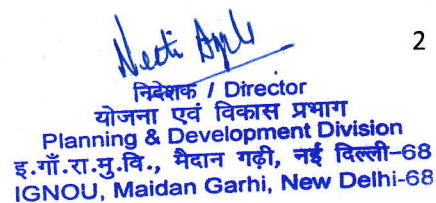 2
निदेशक / Director
योजना एवं विकास प्रभाग
Planning & Development Division
इ.गाँ.रा.मु.वि., मैदान गढ़ी, नई दिल्ली-68
IGNOU, Maidan Garhi, New Delhi-68